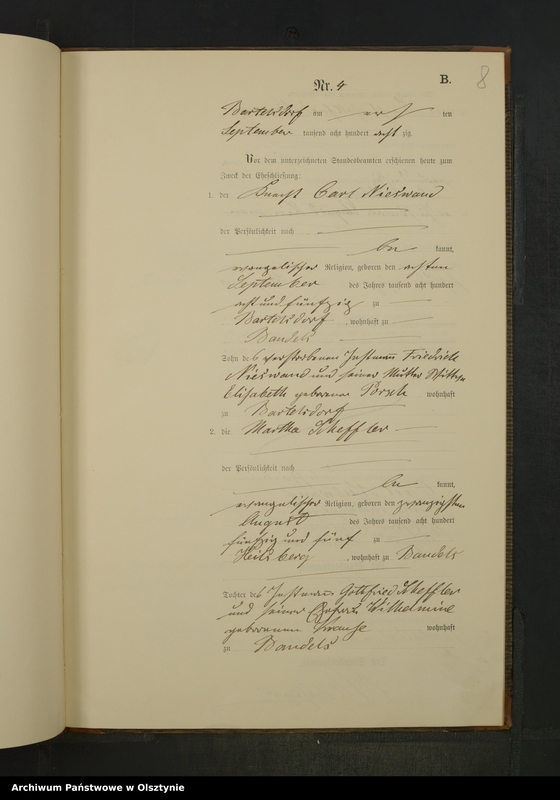 Nr. 4
B.
8
Bartelsdorf am erst ten
September tausend acht hundert acht zig.
Vor dem unterzeichneten Standesbeamten erschienen heute zum
Zweck der Eheschließung:
1. der Knecht Carl Nieswand
der Persönlichkeit nach
be kannt,
evangelischer Religion, geboren den achten
September des Jahres tausend acht hundert
acht und fünfzig zu
Bartelsdorf, wohnhaft zu
Bandels
Sohn des verstorbenen Instmann Friedrich
Nieswand und seiner Mutter Wittwe
Elisabeth geborene Porsch wohnhaft
zu Bartelsdorf
2. die Martha Scheffler
der Persönlichkeit nach
be kannt,
evangelischer Religion, geboren den zwanzigsten
August des Jahres tausend acht hundert
fünfzig und fünf zu
Heilsberg, wohnhaft zu Bandels
Tochter des Instmann Gottfried Scheffler
und seiner Ehefrau Wilhelmine
geborenen Krause wohnhaft
zu Bandels
Archiwum Państwowe w Olsztynie